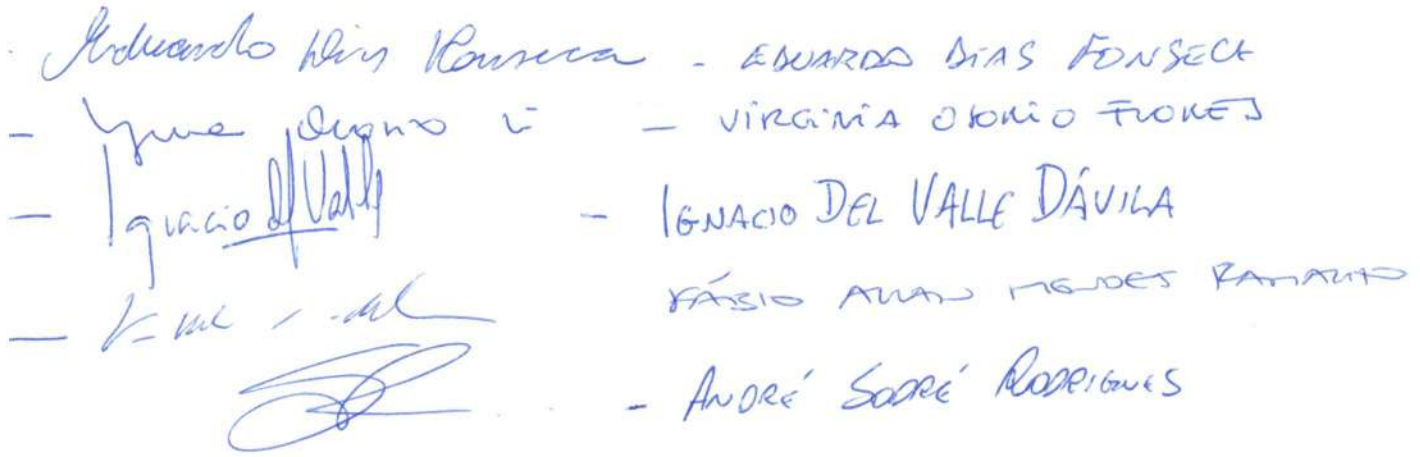 Eduardo Dias Fonseca - EDUARDO DIAS FONSECA
- - VIRGINIA OSORIO FLORES
- Ignacio del Valle - IGNACIO DEL VALLE DÁVILA
- FÁBIO ALLAN MENDES RAMALHO
- ANDRÉ SODRÉ RODRIGUES